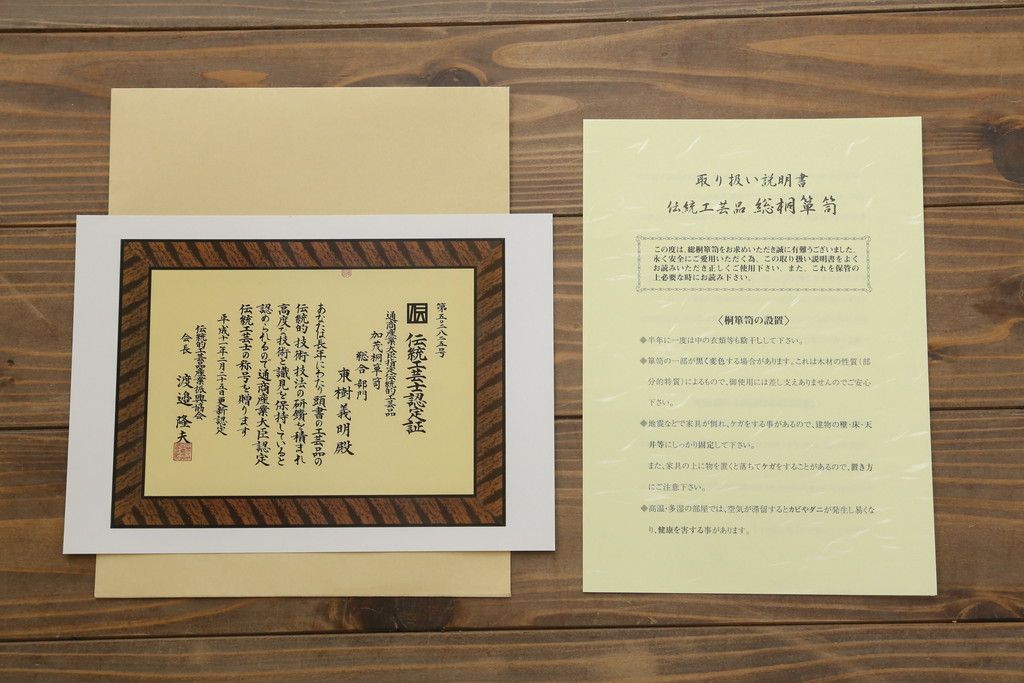 第五〇三八二五号
伝統工芸士認定証
通商産業大臣指定伝統的工芸品
加茂桐箪司
総合部門
東樹義明殿
あなたは長年にわたり頭書の工芸品の
伝統的技術・技法の研鑽を積まれ
高度な技術と識見を保持していると
認められるもので通商産業大臣認定
伝統工芸士の称号を贈ります
平成十一年二月二十五日更新認定
伝統的工芸品産業振興協会
会長 渡邉隆夫
取り扱い説明書
伝統工芸品 総桐箪笥
この度は、総桐箪笥をお求めいただき誠に有難うございました。
永く安全にご愛用いただく為、この取り扱い説明書をよく
お読みいただき正しくご使用下さい。また、これを保管の
上必要な時にお読み下さい。
〈桐箪笥の設置〉
◆半年に一度は中の衣類等も陰干しして下さい。
◆箪笥の一部が黒く変色する場合があります。これは木材の性質(部
分的特質)によるもので、御使用には差し支えありませんのでご安心
下さい。
◆地震などで家具が倒れ、ケガをする事があるので、建物の壁・床・天
井等にしっかり固定して下さい。
また、家具の上に物を置くと落ちてケガをすることがあるので、置き方
にご注意下さい。
◆高温・多湿の部屋では、空気が滞留するとカビやダニが発生し易くな
り、健康を害する事があります。